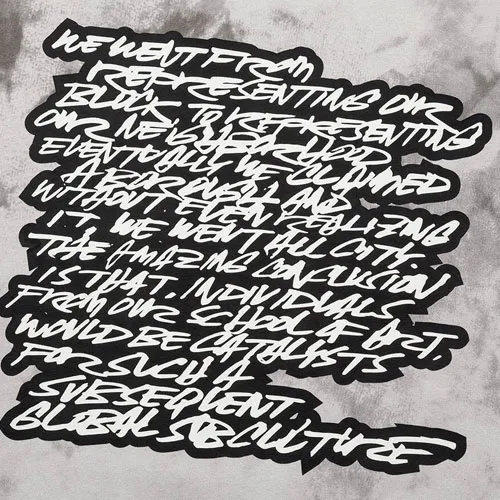 WE WENT FROM
REPRESENTING OUR
BLOCK TO REPRESENTING
OUR NEIGHBORHOOD
EVENTUALLY WE CLAIMED
A BOROUGH AND
WITHOUT EVEN REALIZING
IT, WE WENT ALL CITY.
THE AMAZING CONCLUSION
IS THAT. INDIVIDUALS
FROM OUR SCHOOL OF ART.
WOULD BE CATALYSTS
FOR SUCH A
SUBSEQUENT.
GLOBAL SUBCULTURE